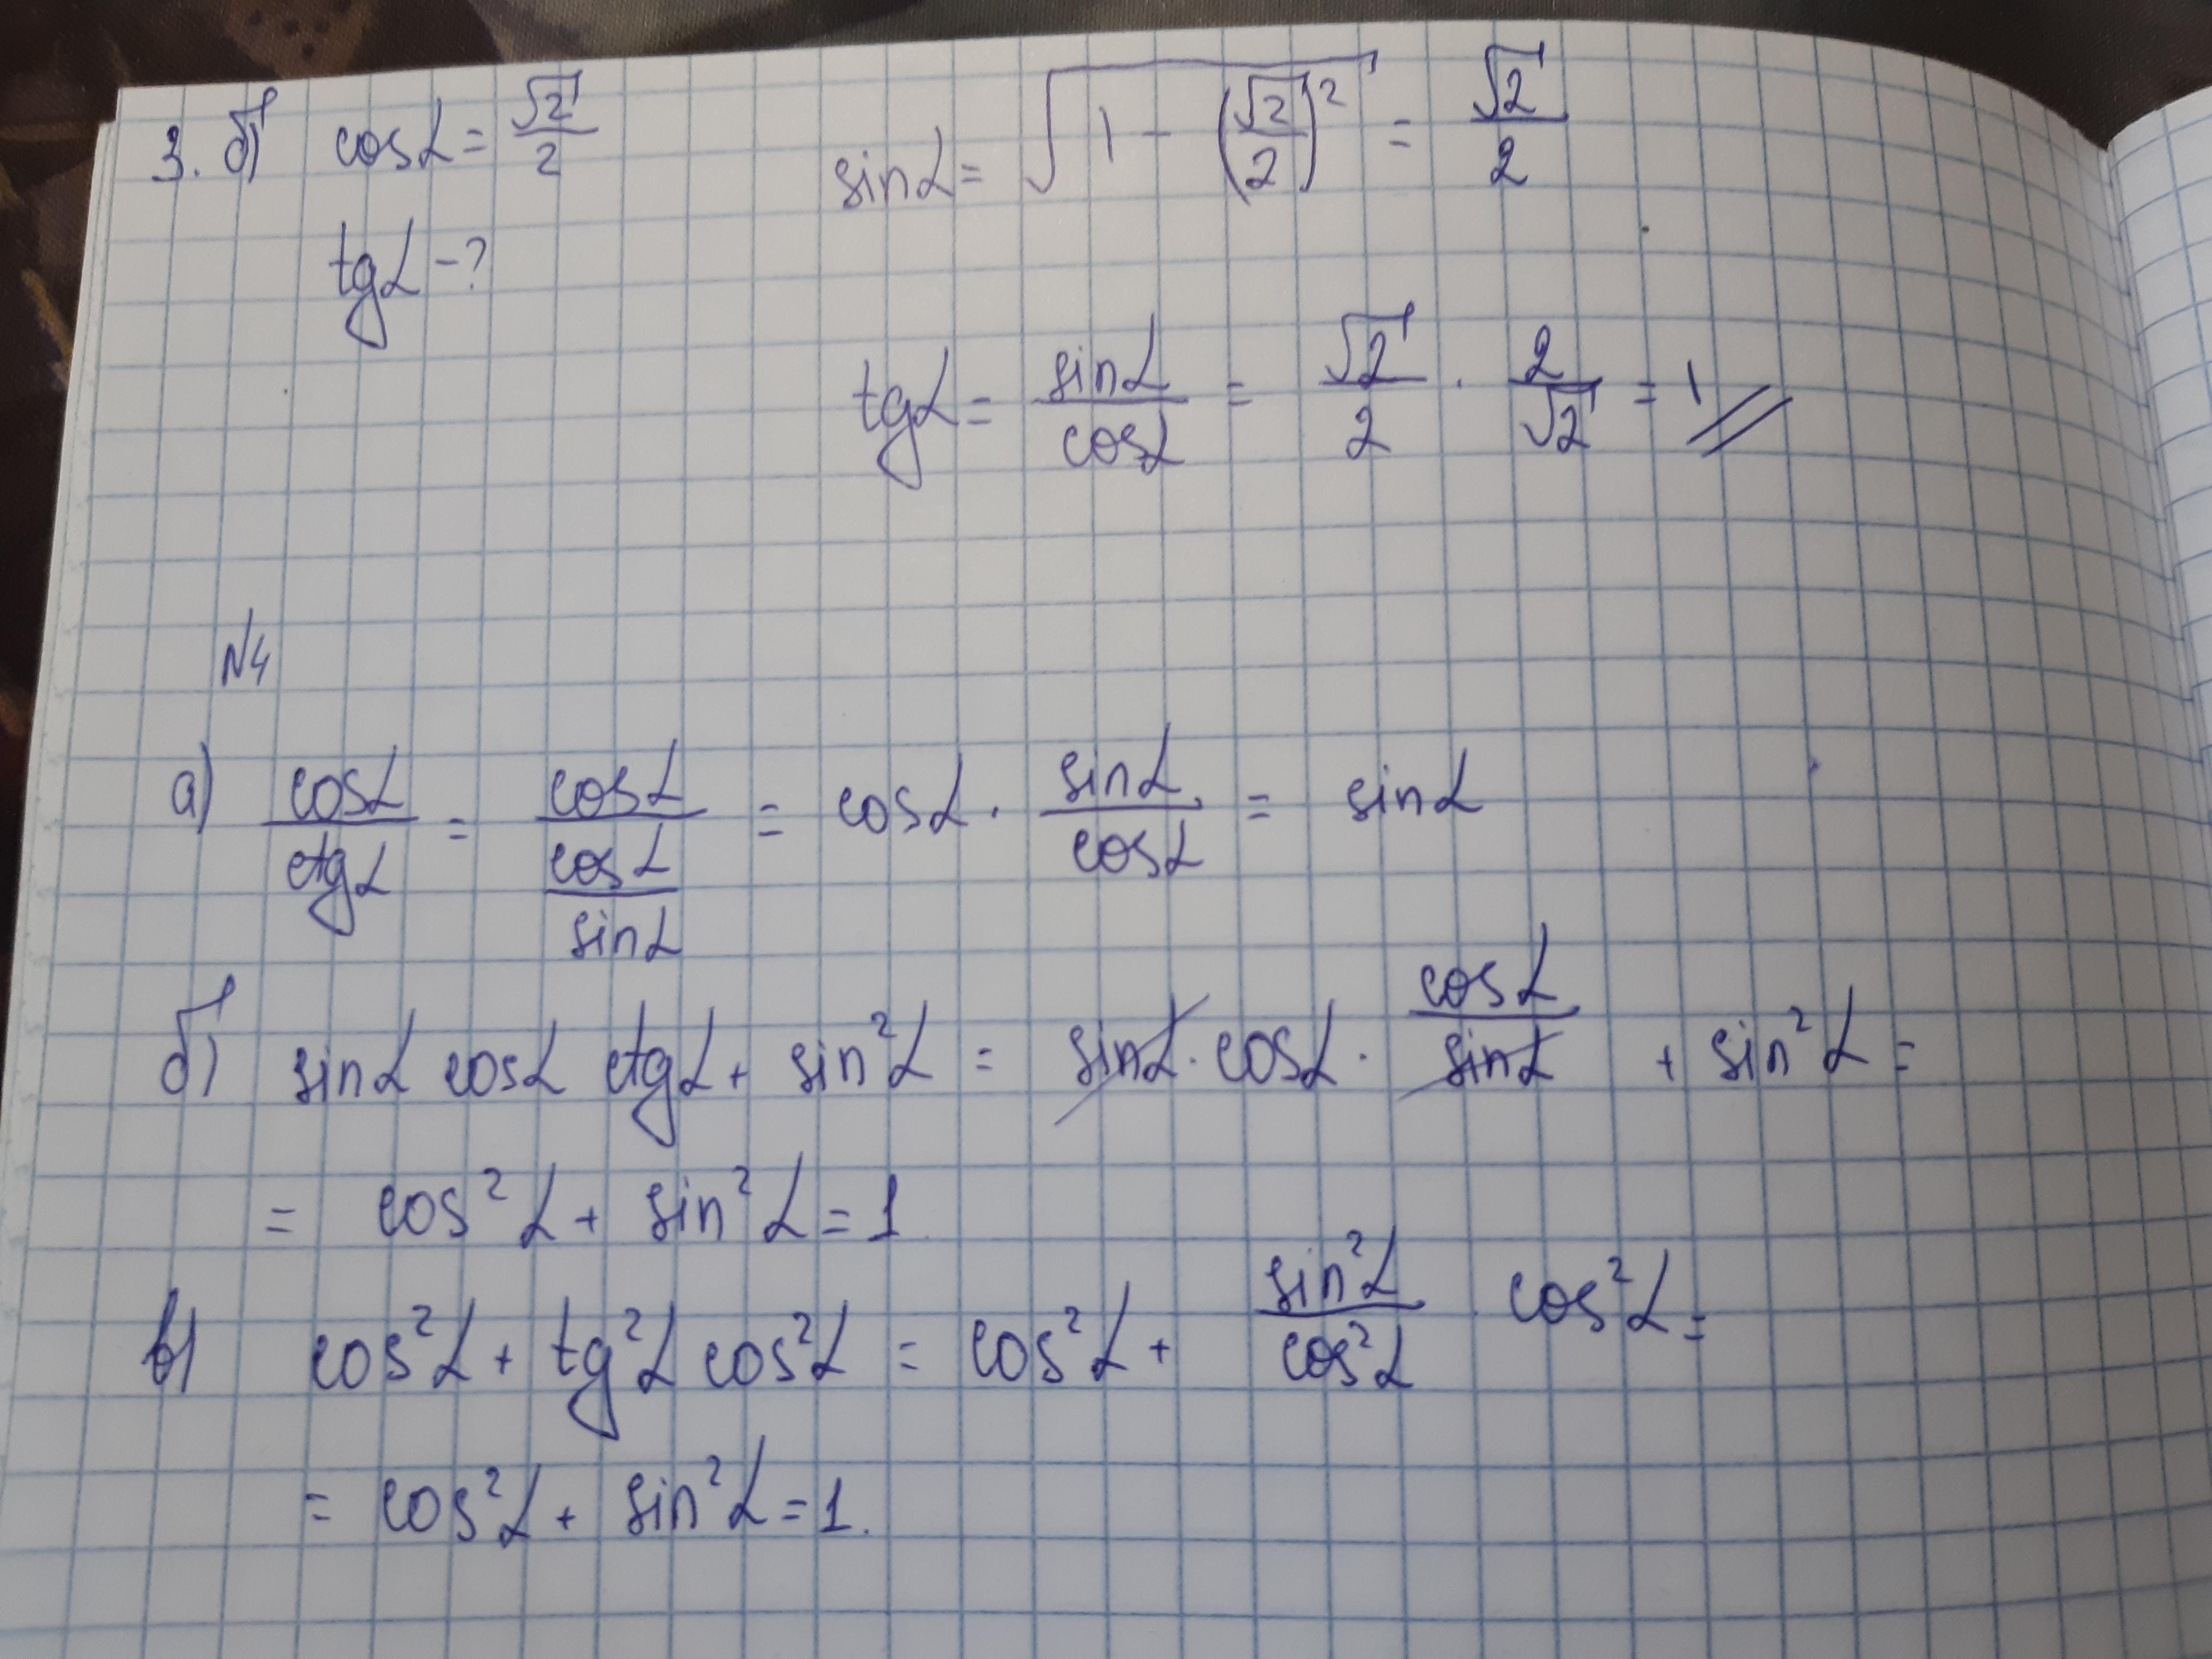 3. б) cosα = √2/2 sinα = √(1 - (√2/2)²) = √2/2
tgα - ?
tgα = sinα/cosα = √2/2 · 2/√2 = 1
№4
а) cosα/ctgα = cosα/(cosα/sinα) = cosα · sinα/cosα = sinα
б) sinα cosα ctgα + sin²α = sinα · cosα · cosα/sinα + sin²α =
= cos²α + sin²α = 1
в) cos²α + tg²α cos²α = cos²α + sin²α/cos²α · cos²α =
= cos²α + sin²α = 1.